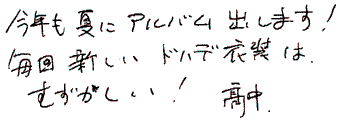 今年も夏にアルバム出します!
毎回新しいドハデ衣装は、
むずがしい! 高中.